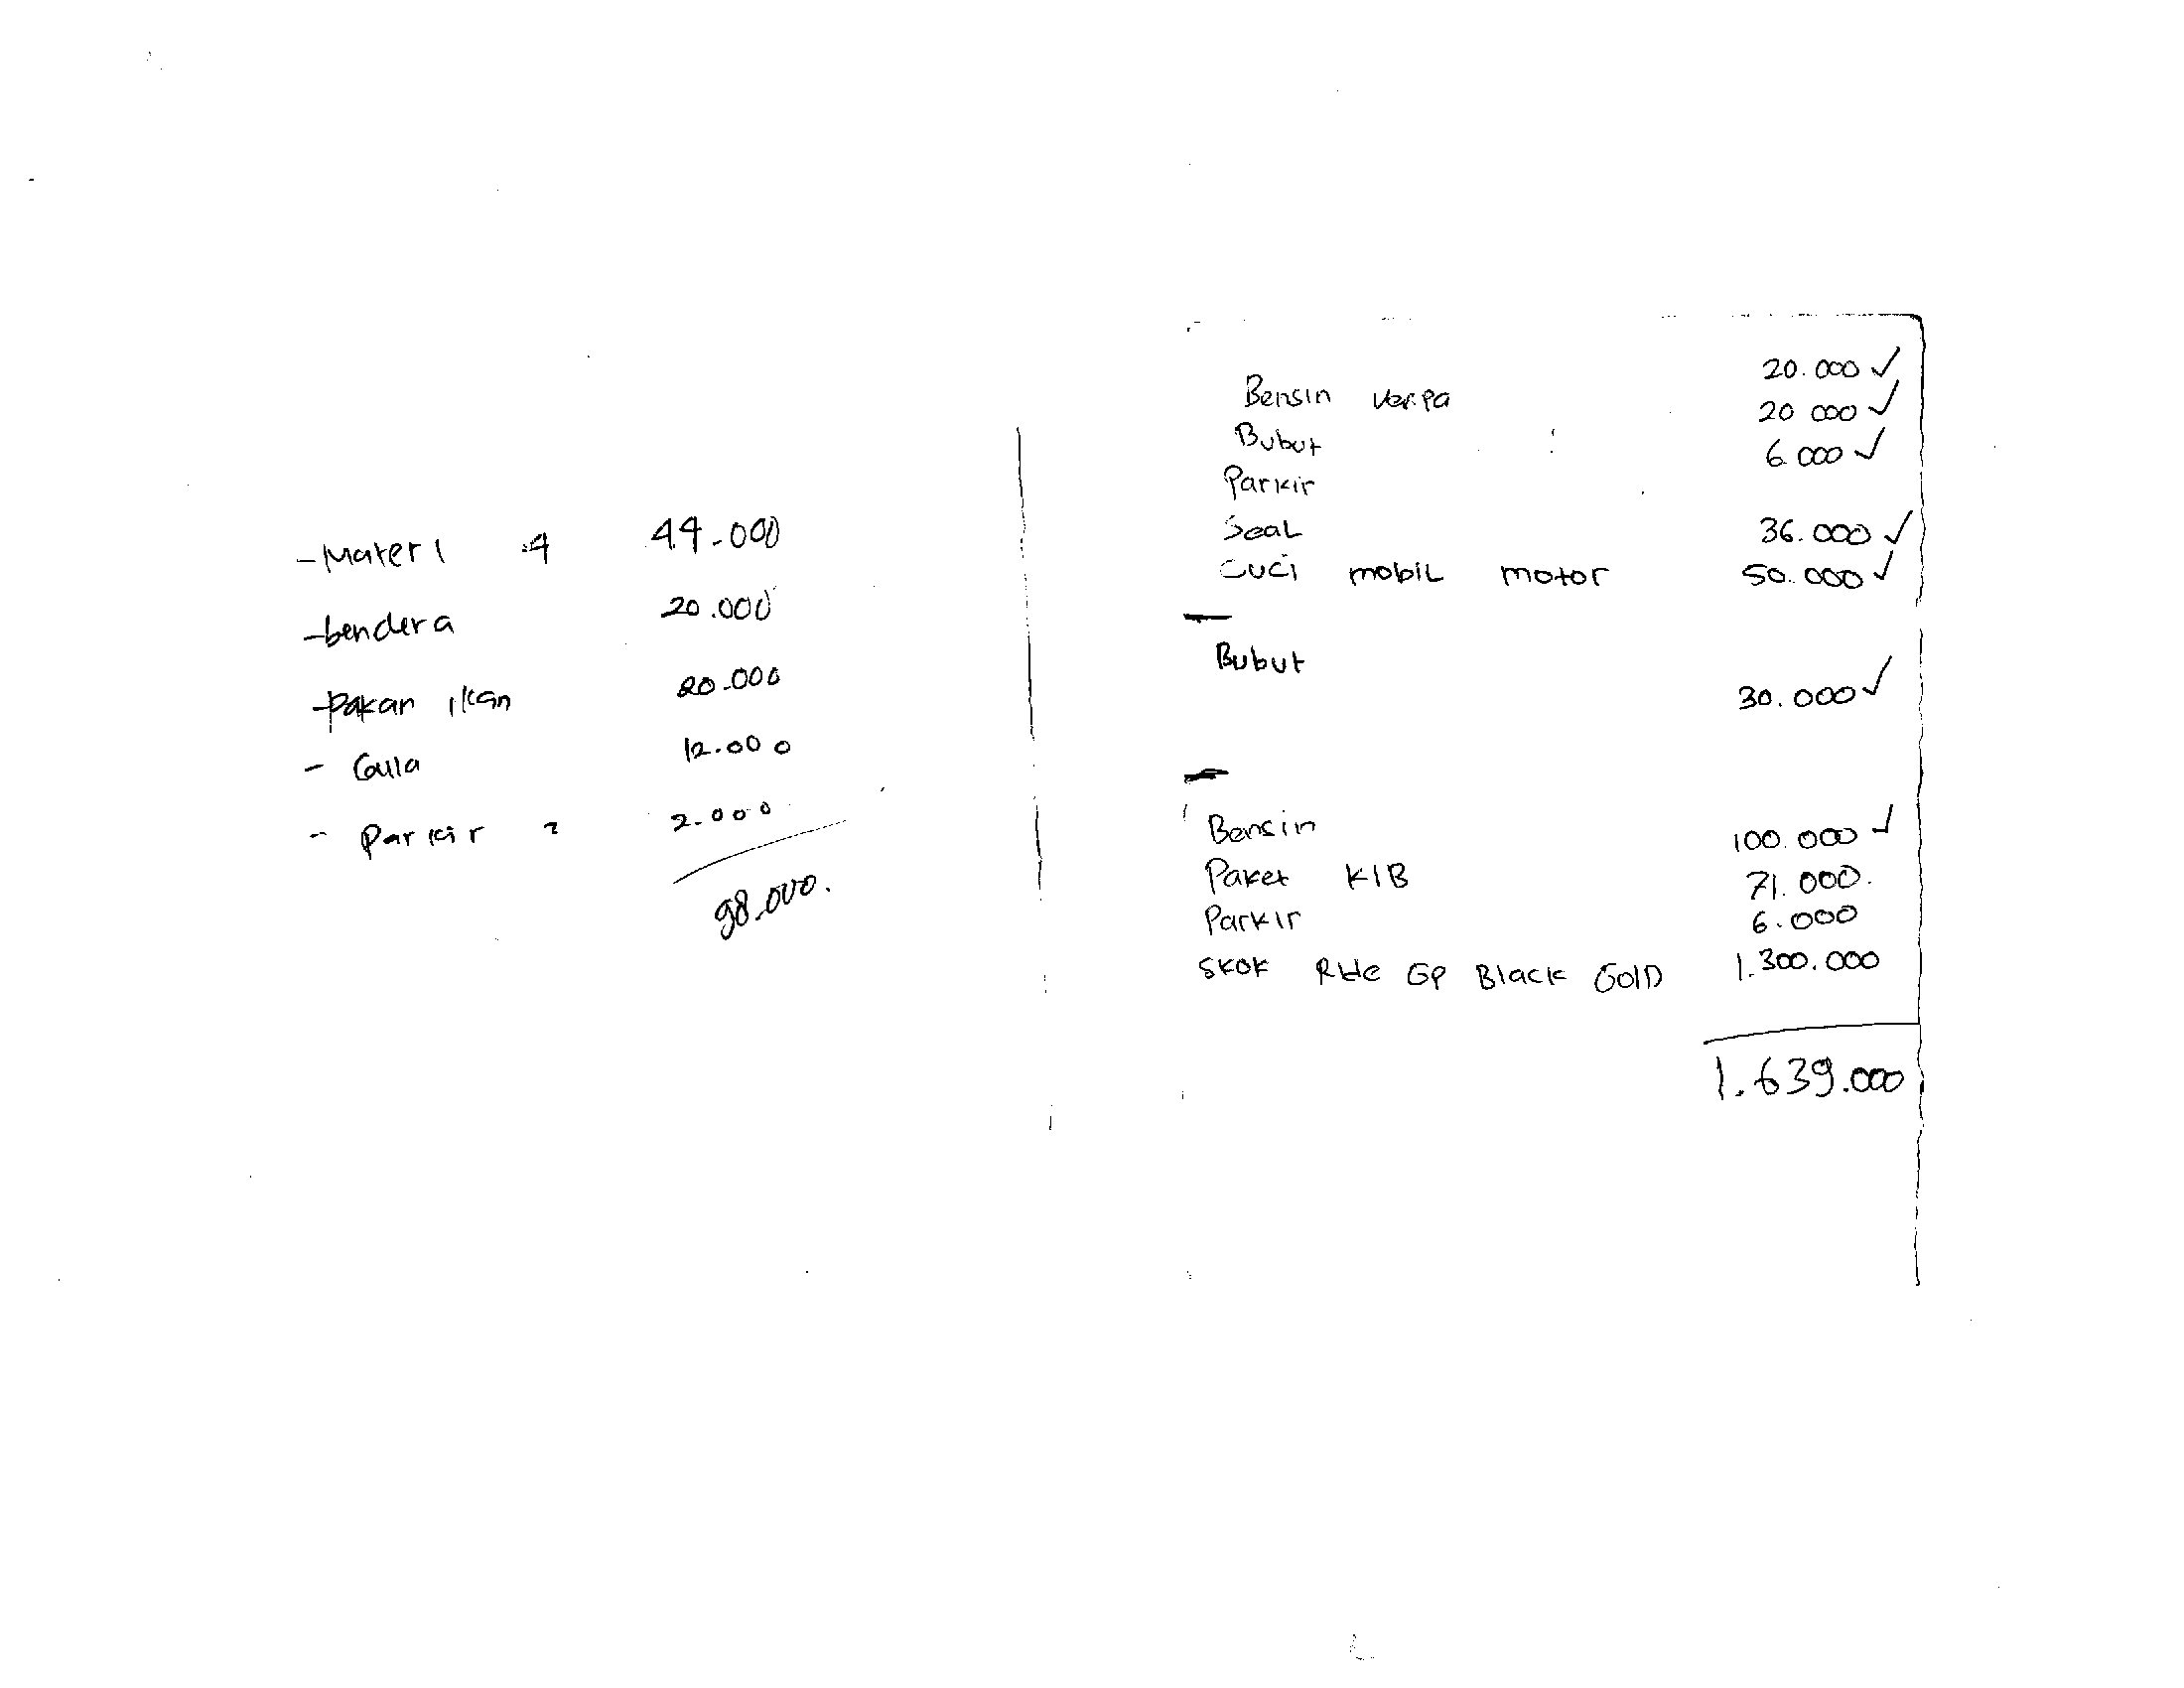 - Materi :4 44.000
- bendera 20.000
- Pakan ikan 20.000
- Gula 12.000
- Parkir 2.000
98.000.
Bensin Verpa 20.000 ✓
Bubut 20 000 ✓
Parkir 6.000 ✓
Seal 36.000 ✓
Cuci mobil motor 50.000 ✓
Bubut 30.000 ✓
Bensin 100.000 ✓
Paket KIB 71.000.
Parkir 6.000
Skok Ride GP Black Gold 1.300.000
1.639.000